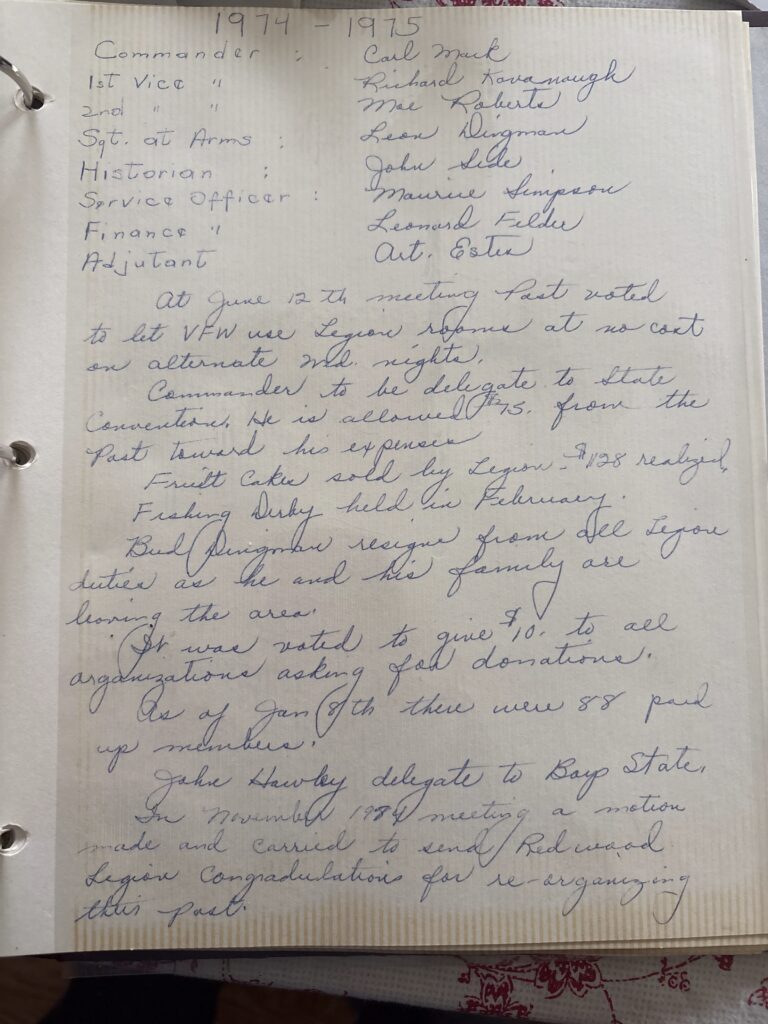 1974 - 1975
Commander : Carl Mack
1st Vice " Richard Kavanaugh
2nd " " Moe Roberts
Sgt. at Arms : Leon Dingman
Historian : John Side
Service Officer : Maurice Simpson
Finance " Leonard Felder
Adjutant Art. Estes
At June 12 th meeting Post voted
to let VFW use Legion rooms at no cost
on alternate Wed. nights.
Commander to be delegate to State
Convention. He is allowed $75. from the
Post toward his expenses
Fruit Cakes sold by Legion - $128 realized.
Fishing Derby held in February.
Bud Dingman resigns from all Legion
duties as he and his family are
leaving the area.
It was voted to give $10. to all
organizations asking for donations.
As of Jan 8th there were 88 paid
up members.
John Hawley delegate to Boys State.
In November meeting a motion
made and carried to send Redwood
Legion Congradulations for re-organizing
their post.